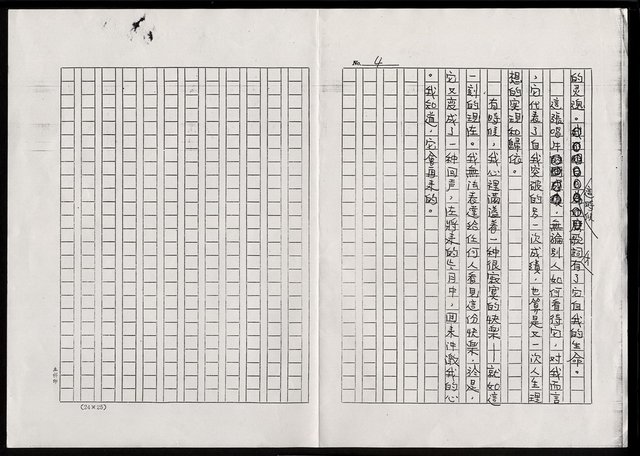 No. 4
的灵魂。歌詞有了它自我的生命。
這時候
這張唱片，無論別人如何看待它，對我而言
，它代表了自我突破的另一次成績，也算是又一次人生理
想的实现和歸依。
有時候，我心裡滿溢着一种很寂寞的快樂——就如這
一刻的現在。我無法表達給任何人看見這份快樂，於是，
它又变成了一种回声，在將來的岁月中，回来伴激我的心
。我知道，它會再来的。
(24×25)